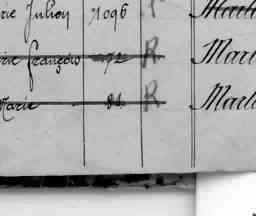 rie Julien 1096 Mart
rie François 72 R Mart
Marie 84 R Mart